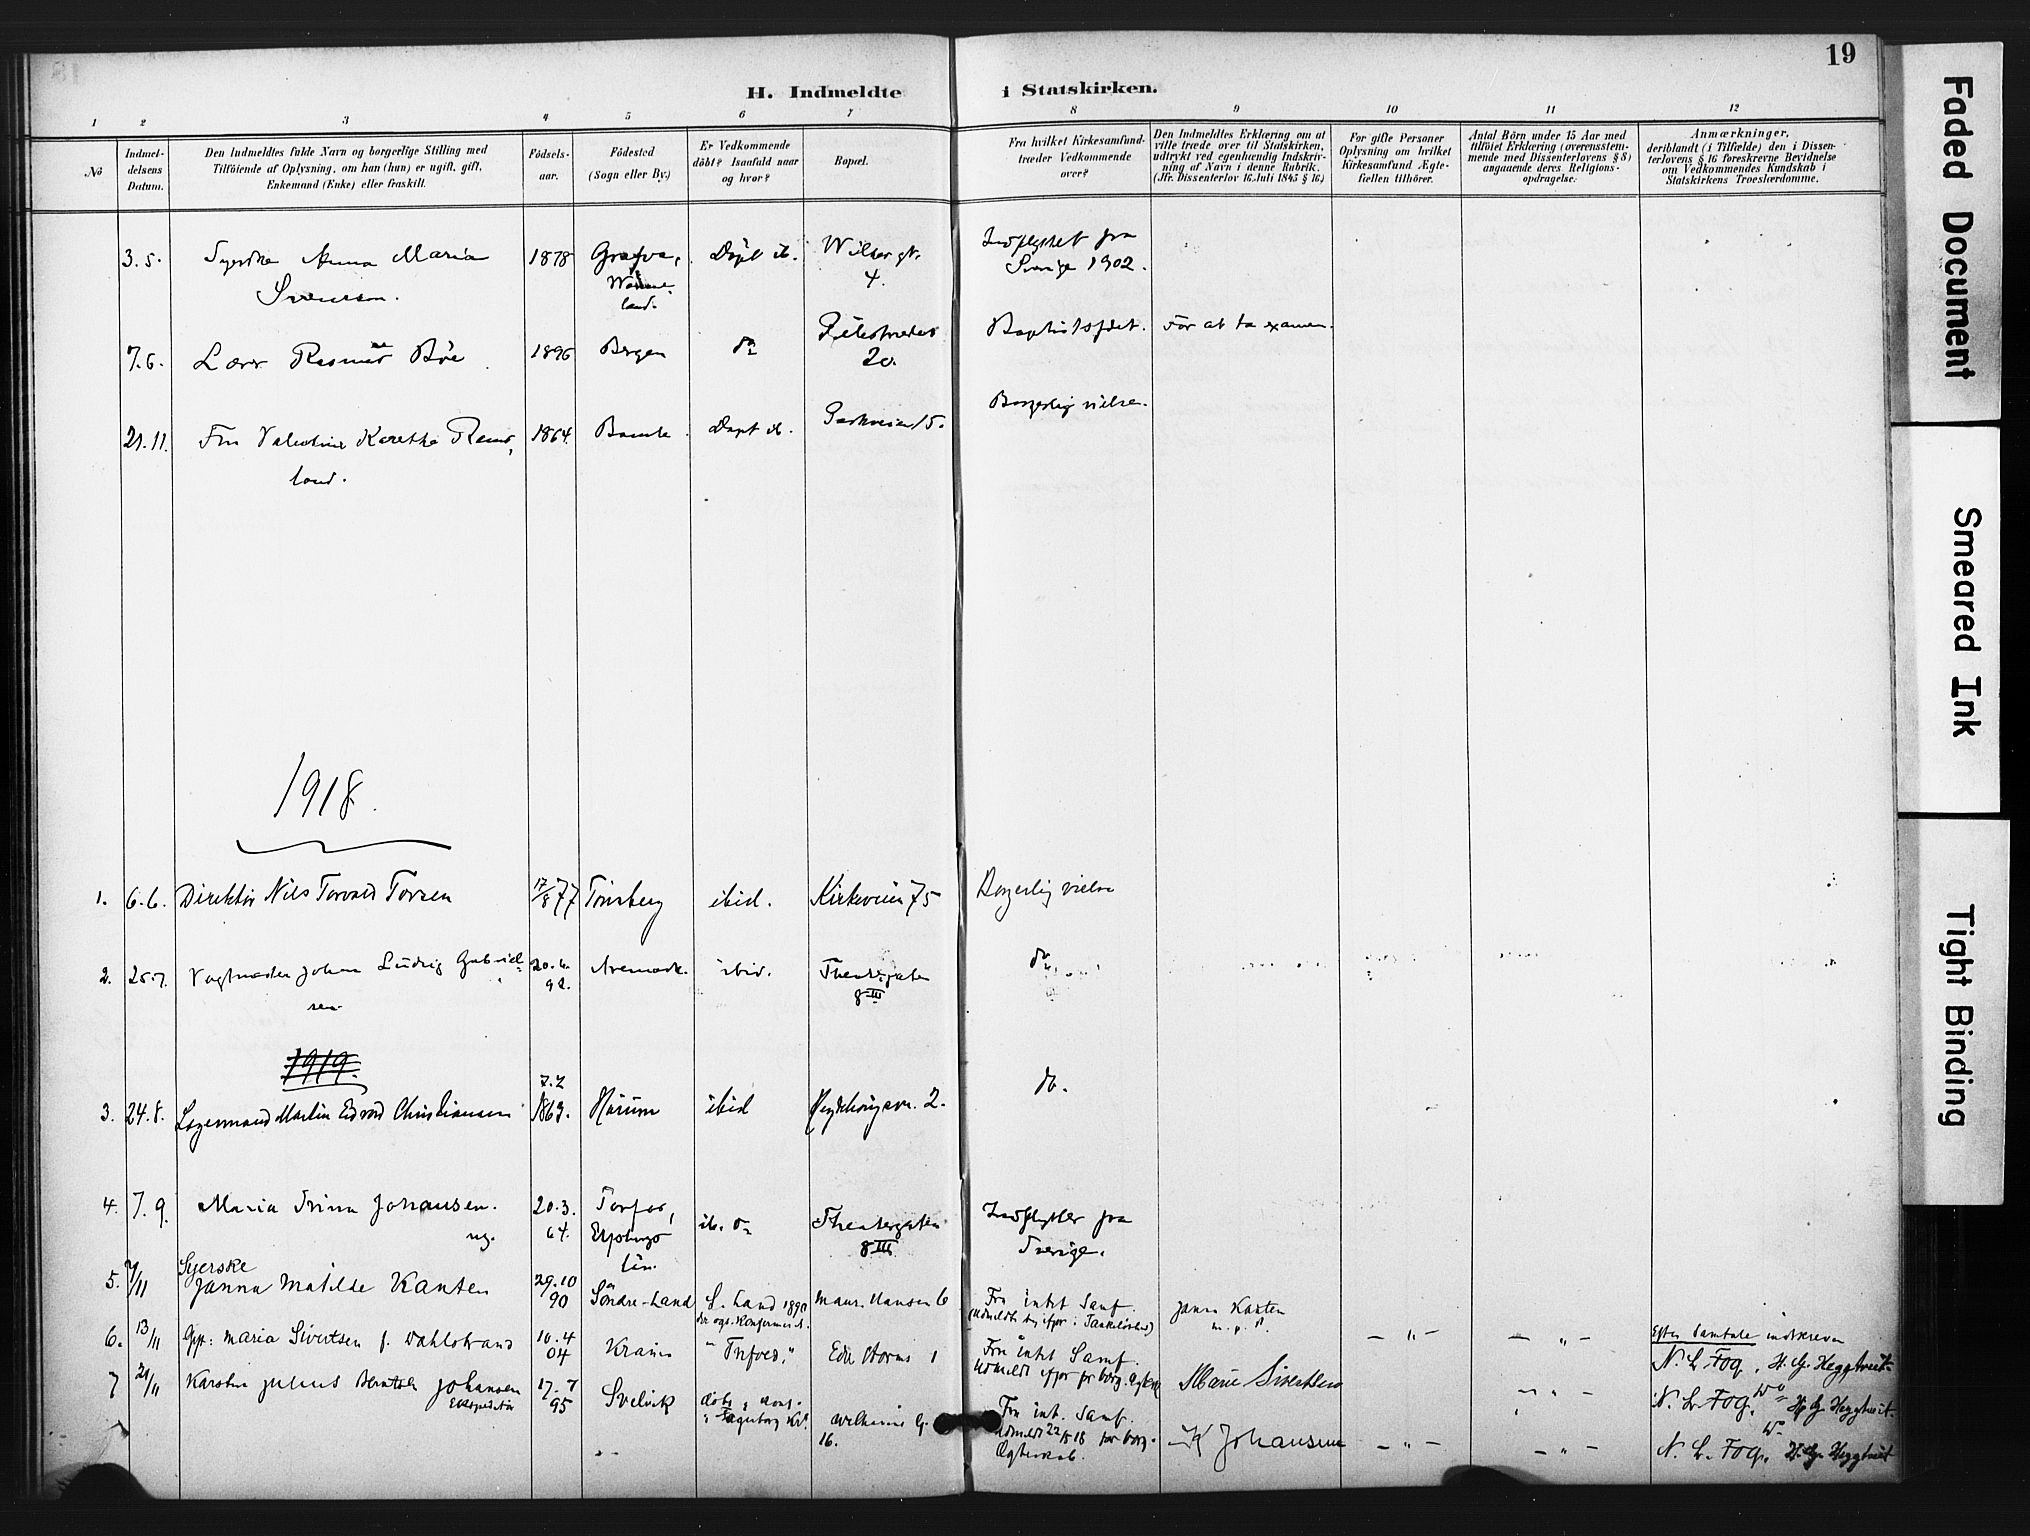 19
H. Indmeldte i Statskirken.
1 2 3 4 5 6 7 8 9 10 11 12
No
Indmel-
delsens
Datum.
Den Indmeldtes fulde Navn og borgerlige Stilling med
Tilföiende af Oplysning, om han (hun) er ugift, gift,
Enkemand (Enke) eller fraskilt.
Födsels-
aar.
Födested
(Sogn eller By.)
Er Vedkommende
döbt? Isaafald naar
og hvor?
Bopæl.
Fra hvilket Kirkesamfund
træder Vedkommende
over?
Den Indmeldtes Erklæring om at
ville træde over til Statskirken,
udtrykt ved egenhændig Indskriv-
ning af Navn i denne Rubrik.
(Jfr. Dissenterlov 16. Juli 1845 § 16.)
For gifte Personer
Oplysning om hvilket
Kirkesamfund Ægte-
fællen tilhörer.
Antal Börn under 15 Aar med
tilföiet Erklæring (overensstem-
mende med Dissenterlovens § 8)
angaaende deres Religions-
opdragelse.
Anmærkninger,
deriblandt (i Tilfælde) den i Dissen-
terlovens § 16 foreskrevne Bevidnelse
om Vedkommendes Kundskab i
Statskirkens Troeslærdomme.
3.5. Syerske Anna Maria 1878 Grafva, Döpt ib. Wilsesgt. Indflyttet fra
Svensson. Werme- 4. Sverige 1902.
land.
7.6. Lærer Rasmus Böe 1896 Bergen do Pilestrædet Baptistsfdet. For at ta examen.
20.
21.11. Fru Valentine Karethe Rams 1864. Bamle Döpt ib. Parkveien 15. Borgerlig vielse.
land.
1918.
1. 6.6. Direktör Nils Torvald Torsen 17/8 77 Tönsberg ibid. Kirkeveien 75 Borgerlig vielse
2. 25.7. Vagtmester Johan Ludvig Gabriel- 20.6. Aremark. ibid. Theatergaten do
sen 92. 8 III
1919.
7.2
3. 24.8. Lagermand Martin Edvard Christiansen 1869. Hurum ibid 2. do.
4. 7.9. Maria Irina Johansen. 20.3. Torpa, ib. do Theatergaten Indflyttet fra
ug. 64. Elfsborgs 8 III Sverige.
län.
Syerske
5. 7/11 Janna Matilde Kanten 29.10 90 Söndre-Land S. Land 1890 Maur. Hansen 6 Fra intet Samf. Janna Kanten
m. p. P.
6. 13/11 Gift: Maria Sivertsen f. Dahlstrand 10.4 04 " Trefold." Edv. Storms 1 Fra intet Samf. Marie Sivertsen — " — — " — Efter Samtale indskreven
Udmeldt for borg. N. L. Fog. H. G. Heggtveit
7 21/11 Karsten Julius Berntsen Johansen 17.7 95 Svelvik döbt & konf. Wilhelms G. Fra int. Samf. K Johansen — " — N. L. Fog. H. G. Heggtveit
Expeditör i Fagerborg K. 16. Udmeldt 22/5 18 for borg. Ægteskab. — " — — " — N. L. Fog. H. G. Heggtveit
Faded Document
Smeared Ink
Tight Binding